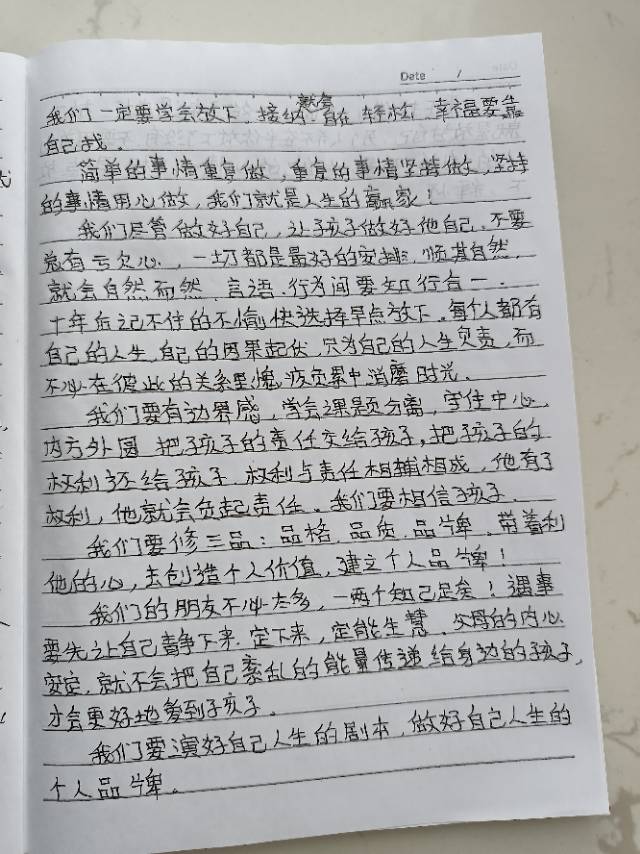 Date /
我们一定要学会放下、接纳、自在、轻松、幸福要靠
自己找。
简单的事情重复做,重复的事情坚持做,坚持
的事情用心做,我们就是人生的赢家!
我们尽管做好自己,让孩子做好他自己,不要
总有亏欠心,一切都是最好的安排,顺其自然,
就会自然而然,言语、行为间要知行合一。
十年后记不住的不愉快选择早点放下,每个人都有
自己的人生,自己的因果起伏,只为自己的人生负责,而
不必在彼此的关系里愧疚负累中消磨时光。
我们要有边界感,学会课题分离,守住中心,
内方外圆,把孩子的责任交给孩子,把孩子的
权利还给孩子,权利与责任相辅相成,他有了
权利,他就会负起责任。我们要相信孩子。
我们要修三品:品格、品质、品牌。带着利
他的心,去创造个人价值,建立个人品牌!
我们的朋友不必太多,一两个知己足矣!遇事
要先让自己静下来,定下来,定能生慧,父母的内心
安定,就不会把自己紊乱的能量传递给身边的孩子,
才会更好地爱到孩子。
我们要演好自己人生的剧本,做好自己人生的
个人品牌。